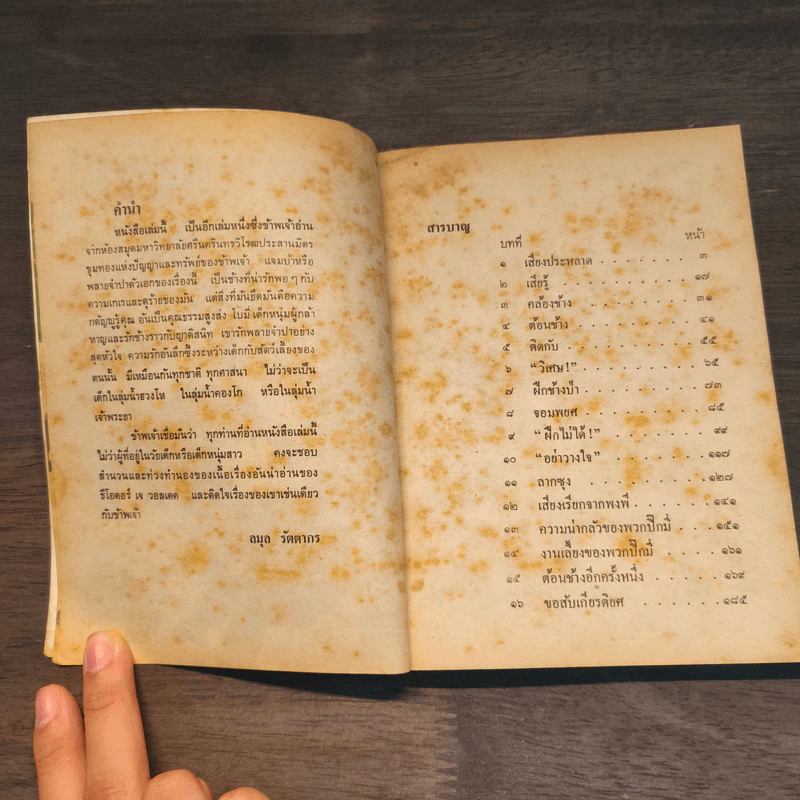 คำนำ
หนังสือเล่มนี้ เป็นอีกเล่มหนึ่งซึ่งข้าพเจ้าอ่าน
จากห้องสมุดมหาวิทยาลัยศรีนครินทรวิโรฒประสานมิตร
ขุมทองแห่งปัญญาและทรัพย์ของข้าพเจ้า แจมบ้าหรือ
พลายจำปาตัวเอกของเรื่องนี้ เป็นช้างที่น่ารักพอ ๆ กับ
ความเกเรและดุร้ายของมัน แต่สิ่งที่มันยึดมั่นคือความ
กตัญญูรู้คุณ อันเป็นคุณธรรมสูงส่ง โบมี เด็กหนุ่มผู้กล้า
หาญและรักช้างราวกับญาติสนิท เขารักพลายจำปาอย่าง
สุดหัวใจ ความรักอันลึกซึ้งระหว่างเด็กกับสัตว์เลี้ยงของ
ตนนั้น มีเหมือนกันทุกชาติ ทุกศาสนา ไม่ว่าจะเป็น
เด็กในลุ่มน้ำฮวงโห ในลุ่มน้ำคองโก หรือในลุ่มน้ำ
เจ้าพระยา
ข้าพเจ้าเชื่อมั่นว่า ทุกท่านที่อ่านหนังสือเล่มนี้
ไม่ว่าผู้ที่อยู่ในวัยเด็กหรือเด็กหนุ่มสาว คงจะชอบ
สำนวนและท่วงทำนองของเนื้อเรื่องอันน่าอ่านของ
ธีโอดอร์ เจ วอลเดค และติดใจเรื่องของเขาเช่นเดียว
กับข้าพเจ้า
ลมุล รัตตากร
สารบาญ
บทที่ หน้า
๑ เสียงประหลาด ๓
๒ เสียรู้ ๑๗
๓ คล้องช้าง ๓๑
๔ ต้อนช้าง ๔๑
๕ ติดกับ ๕๕
๖ “วิเศษ!” ๖๕
๗ ฝึกช้างป่า ๗๓
๘ จอมพยศ ๘๕
๙ “ฝึกไม่ได้!” ๙๙
๑๐ “อย่าวางใจ” ๑๑๗
๑๑ ลากซุง ๑๒๗
๑๒ เสียงเรียกจากพงพี ๑๔๑
๑๓ ความน่ากลัวของพวกปิ๊กมี่ ๑๕๑
๑๔ งานเลี้ยงของพวกปิ๊กมี่ ๑๖๑
๑๕ ต้อนช้างอีกครั้งหนึ่ง ๑๖๙
๑๖ ขอสับเกียรติยศ ๑๘๕